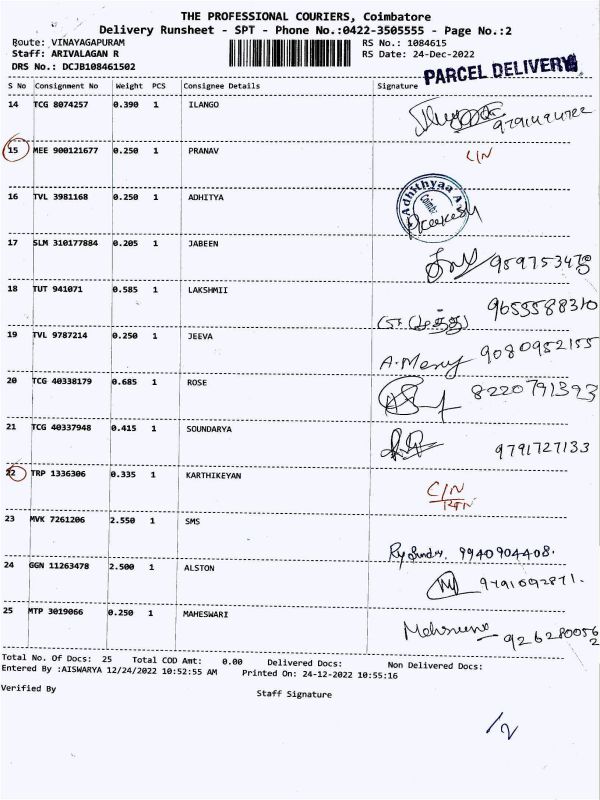 THE PROFESSIONAL COURIERS, Coimbatore
Delivery Runsheet - SPT - Phone No.:0422-3505555 - Page No.:2
Route: VINAYAGAPURAM RS No.: 1084615
Staff: ARIVALAGAN R RS Date: 24-Dec-2022
DRS No.: DCJB108461502 PARCEL DELIVERY
S No Consignment No Weight PCS Consignee Details Signature
14 TCG 8074257 0.390 1 ILANGO
15 MEE 900121677 0.250 1 PRANAV C/N
16 TVL 3981168 0.250 1 ADHITYA Adhithyaa A
17 SLM 310177884 0.205 1 JABEEN
18 TUT 941071 0.585 1 LAKSHMII 9655588310
19 TVL 9787214 0.250 1 JEEVA A.Mery 9080952155
20 TCG 40338179 0.685 1 ROSE 8220791393
21 TCG 40337948 0.415 1 SOUNDARYA 9791727133
22 TRP 1336306 0.335 1 KARTHIKEYAN C/N
RTN
23 MVK 7261206 2.550 1 SMS 9940904408.
24 GGN 11263478 2.500 1 ALSTON 9791092871.
25 MTP 3019066 0.250 1 MAHESWARI
Total No. Of Docs: 25 Total COD Amt: 0.00 Delivered Docs: Non Delivered Docs:
Entered By :AISWARYA 12/24/2022 10:52:55 AM Printed On: 24-12-2022 10:55:16
Verified By Staff Signature